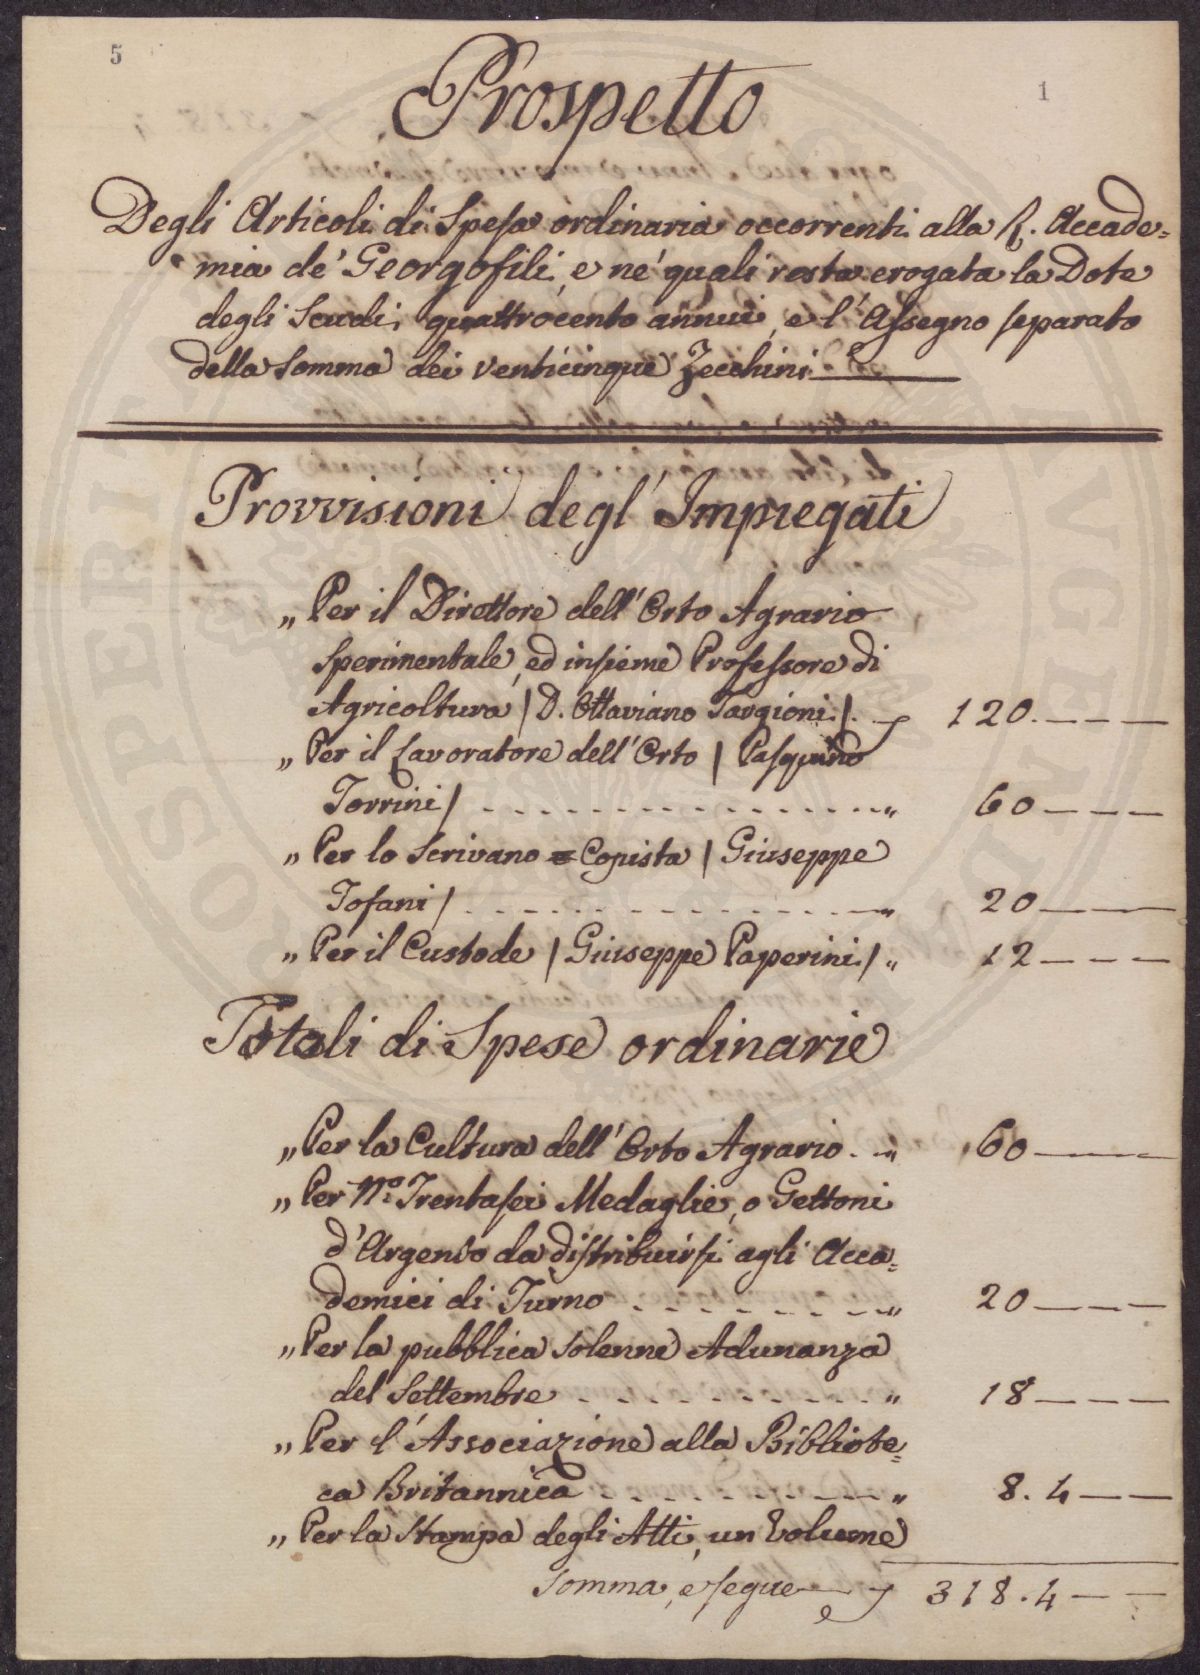 5
1
Prospetto
Degli Articoli di Spesa ordinaria occorrenti alla R. Accade=
mia de' Georgofili, e ne' quali resta erogata la Dote
degli Scudi quattrocento annui, e l'Assegno separato
della somma dei venticinque Zecchini
Provvisioni degl'Impiegati
" Per il Direttore dell'Orto Agrario
Sperimentale, ed insieme Professore di
Agricoltura / D. Ottaviano Targioni / 120. — — —
" Per il Lavoratore dell'Orto / Pasquino
Torrini / " 60 — — —
" Per lo Scrivano = Copista / Giuseppe
Tofani / " 20 — — —
" Per il Custode / Giuseppe Paperini / " 12 — — —
Totali di Spese ordinarie
" Per la Cultura dell'Orto Agrario. " 60 — — —
" Per N.o Trentasei Medaglie, o Gettoni
d'Argento da distribuirsi agli Acca=
demici di Turno " 20 — — —
" Per la pubblica solenne Adunanza
del Settembre " 18 — — —
" Per l'Associazione alla Bibliote=
ca Britannica " 8. 4 — —
" Per la Stampa degli Atti, un Volume
Somma, e segue 318. 4 — —
PROSPERITATI PUBLICAE AUGENDAE